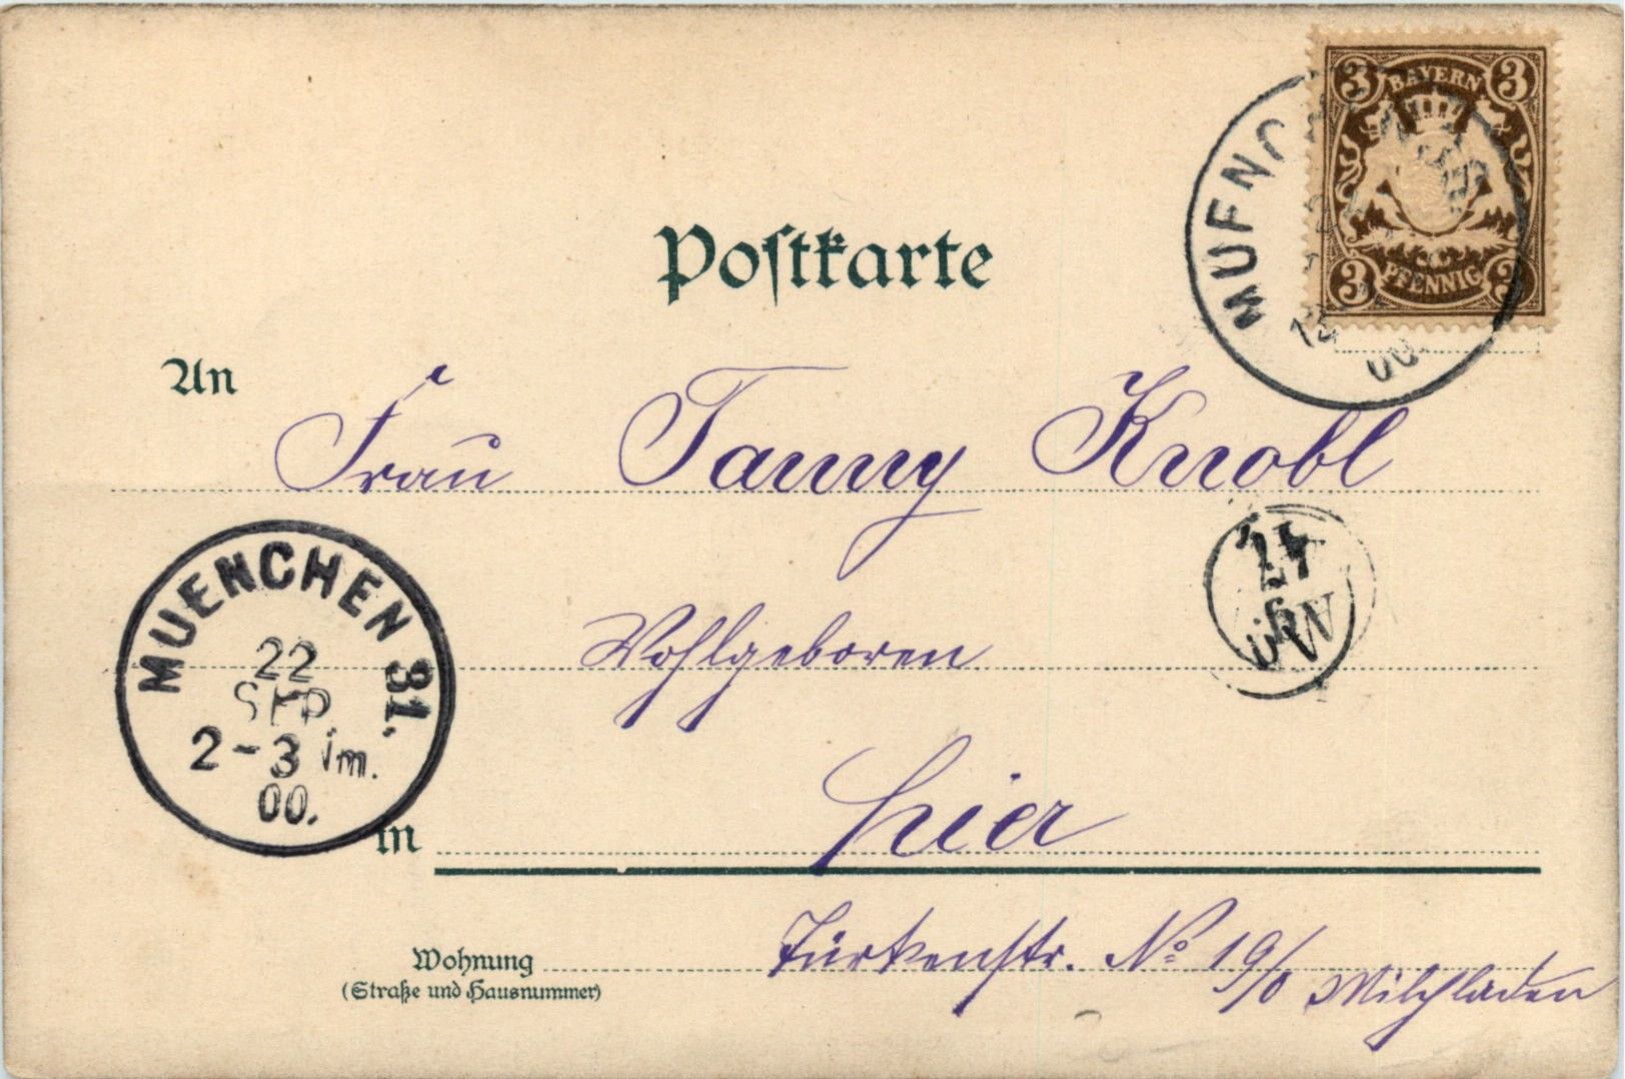 3 BAYERN 3
3 PFENNIG 3
MUENC
00.
Postkarte
An
Frau Fanny Knobl
MUENCHEN 31.
22
SEP
2-3 Nm.
00.
Wohlgeboren
in hier
Wohnung Türkenstr. No 19/0 Milchladen
(Straße und Hausnummer)